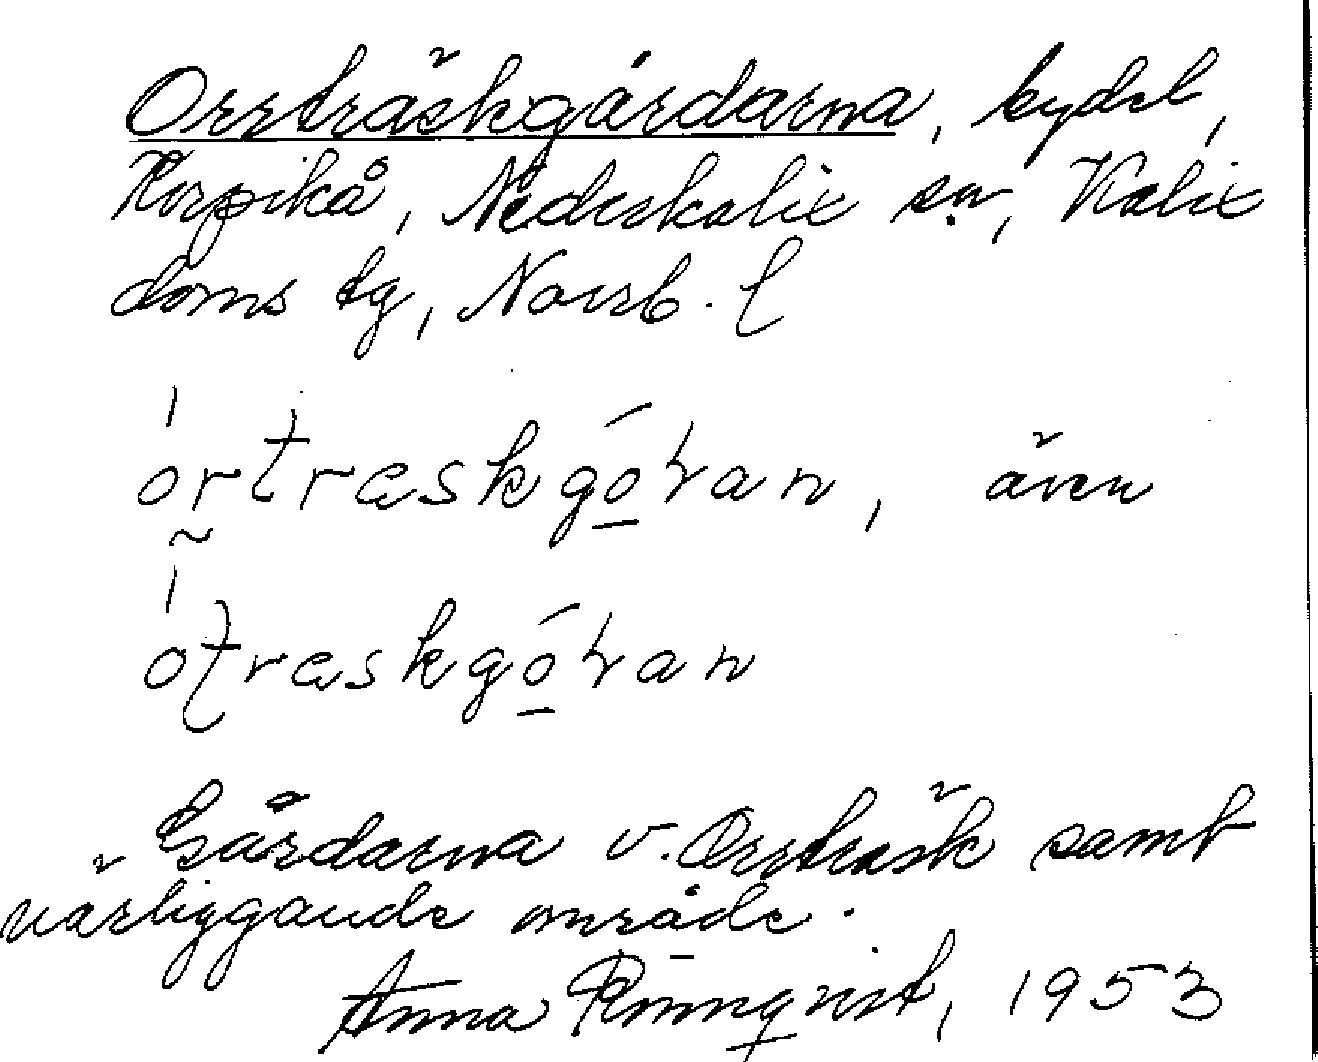 Orrträskgårdarna, bydel,
Korpikå, Nederkalix sn, Kalix
doms tg, Norrb. l
órtræskgó̱ran, även
ótræskgó̱ran
Gårdarna v. Orrträsk samt
närliggande område.
Anna Rönnqvist, 1953